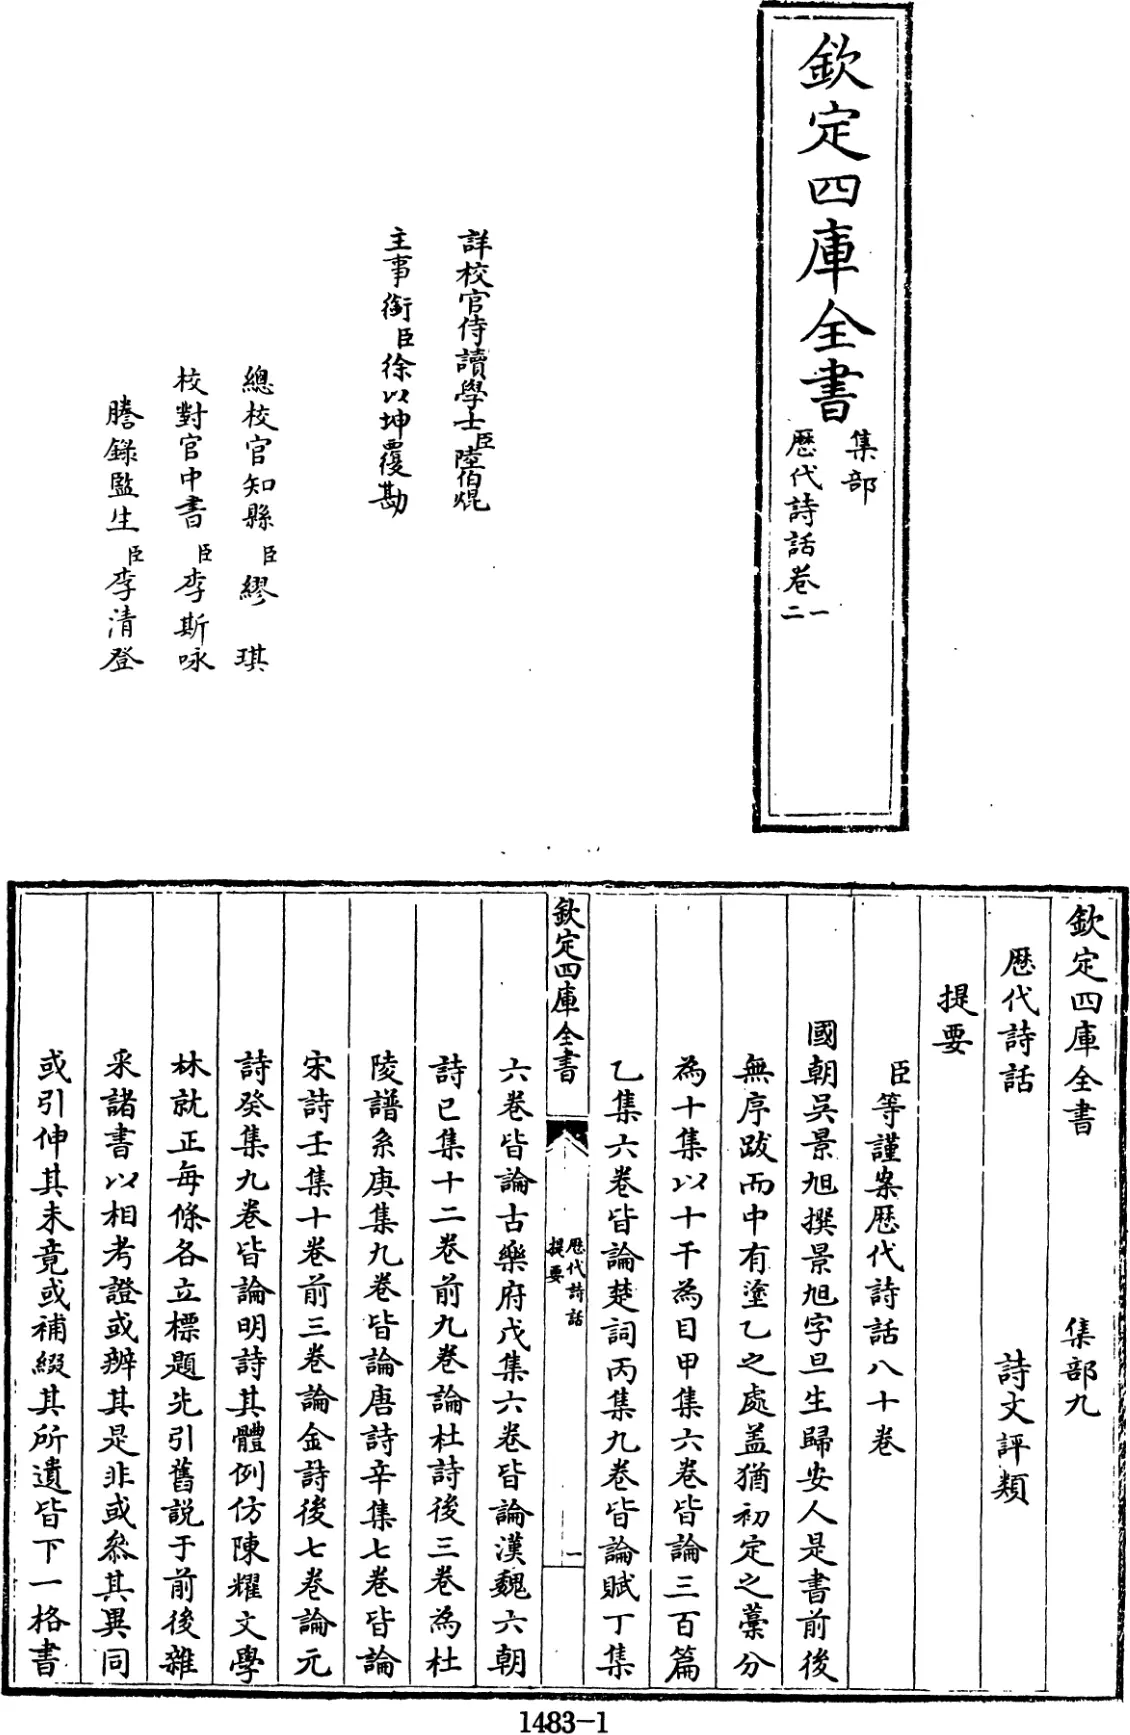 欽定四庫全書
集部
歷代詩話卷一二
詳校官侍讀學士臣陸伯焜
主事銜臣徐以坤覆勘
總校官知縣臣繆琪
校對官中書臣李斯咏
謄錄監生臣李清登
欽定四庫全書 集部九
歷代詩話 詩文評類
提要
臣等謹案歷代詩話八十卷
國朝吳景旭撰景旭字旦生歸安人是書前後
無序跋而中有塗乙之處盖猶初定之藁分
為十集以十干為目甲集六卷皆論三百篇
乙集六卷皆論楚詞丙集九卷皆論賦丁集
欽定四庫全書 歷代詩話提要 一
六卷皆論古樂府戊集六卷皆論漢魏六朝
詩己集十二卷前九卷論杜詩後三卷為杜
陵譜系庚集九卷皆論唐詩辛集七卷皆論
宋詩壬集十卷前三卷論金詩後七卷論元
詩癸集九卷皆論明詩其體例仿陳耀文學
林就正每條各立標題先引舊說于前後雜
采諸書以相考證或辨其是非或叅其異同
或引伸其未竟或補綴其所遺皆下一格書
1483-1